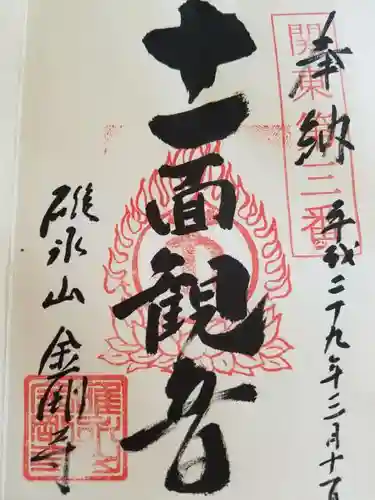 奉納
平成二十九年三月十一日
関東第三番
十一面観音
碓氷山 金剛寺